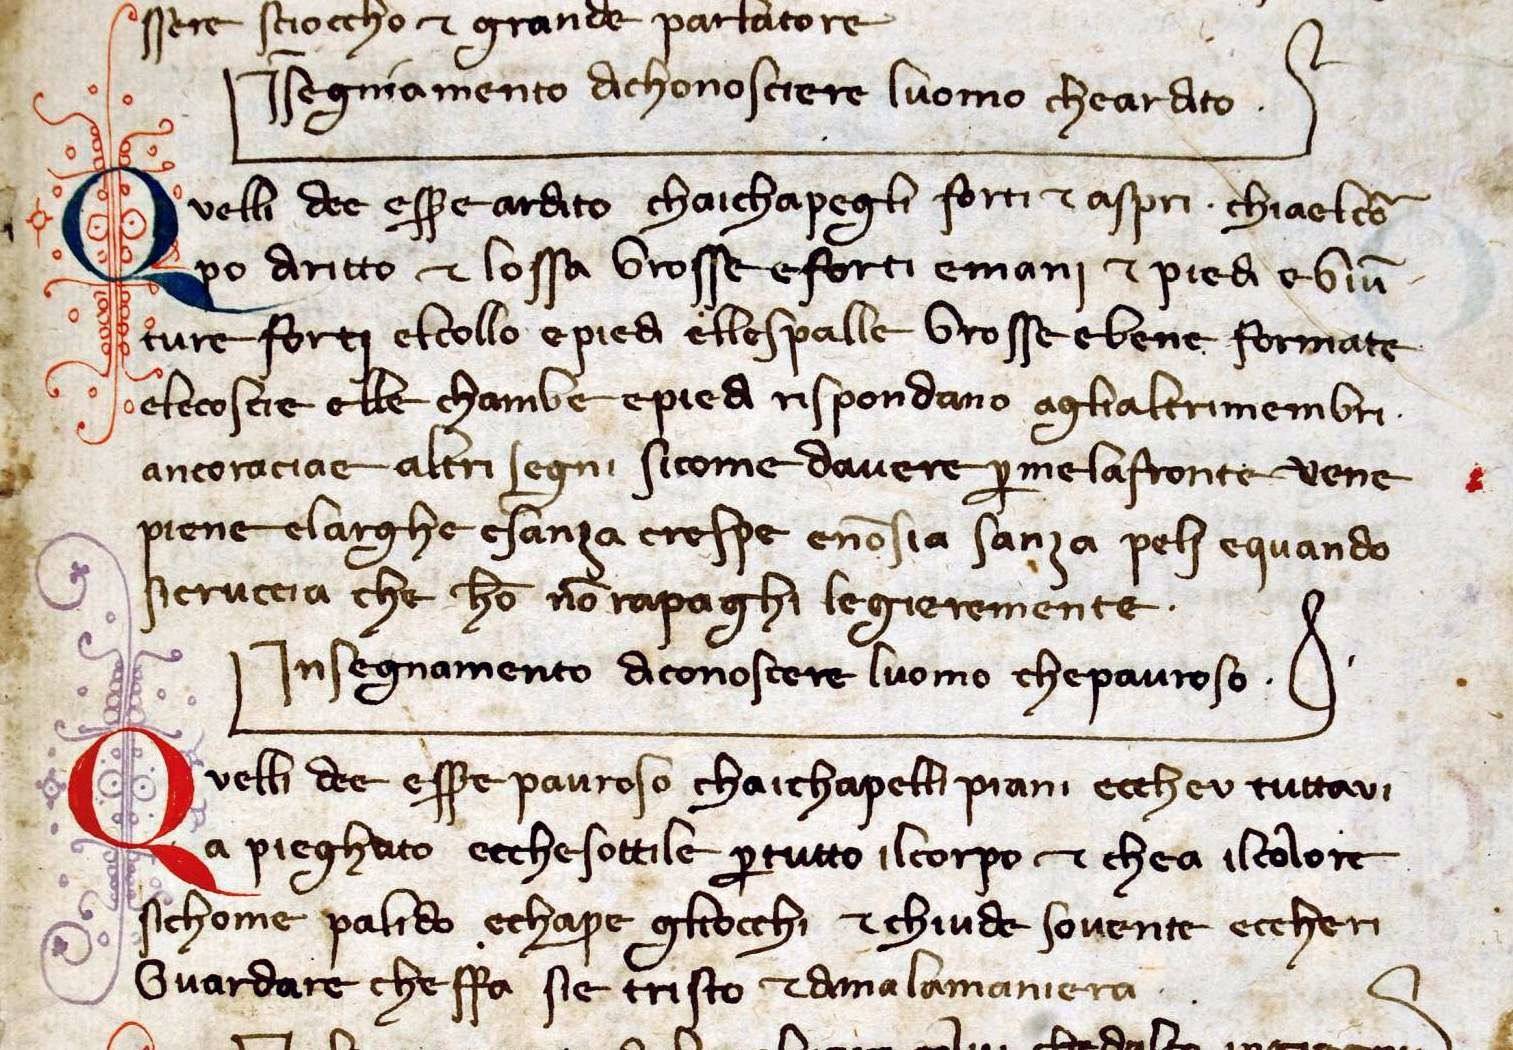 ssere scioccho ⁊ grande parlatore
Īsegniamento achonosciere luomo cheardito .
Quelli dee eſſe ardito chaichapegli forti ⁊ aspri . chiaelcō
po diritto ⁊ lossa Grosse eforti emani ⁊ piedi eGiū
ture forti elcollo epiedi ellespalle Grosse ebene formate
elecoscie elle chambe epiedi rispondano aglialtrimembri .
ancoraciae altri segni sicome davere p̱melafronte vene
piene elarghe esanza crespe enōsia sanza peli equando
sicruccia che hō nō rapaghi legieremente .
Insegnamento aconoscere luomo chepauroso .
Quelli dee eſſe pauroso chaichapelli piani eccheu tuttavi
a pieghato ecchesottile p̱tutto ilcorpo ⁊ chea ilcolore
sichome palido echape gliocchi ⁊ chiude sovente eccheri
Guardare cheffa sie tristo ⁊ amalamaniera